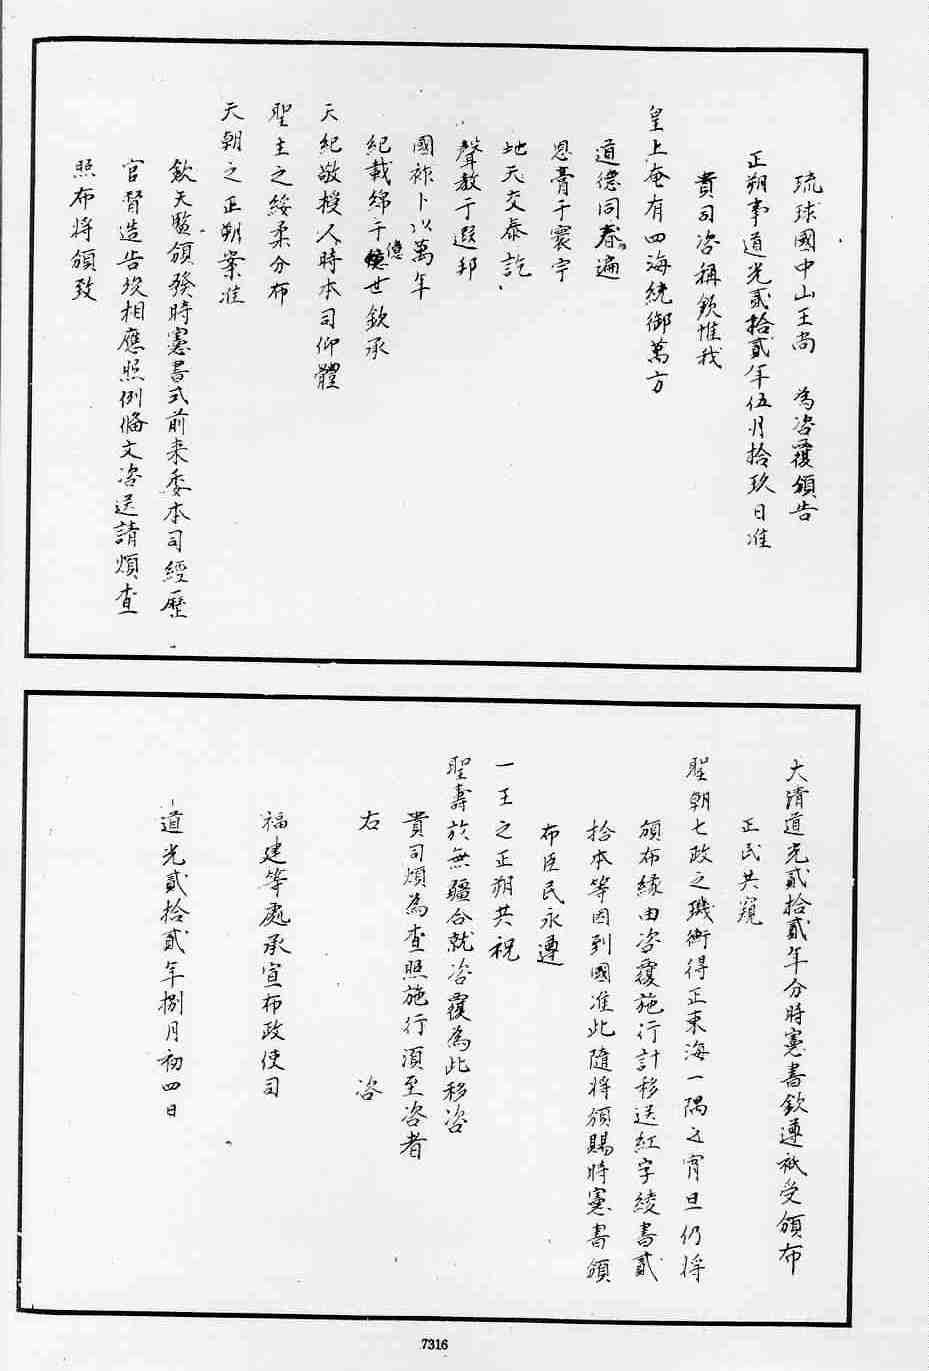 琉球國中山王尚　為咨覆頒告
正朔事道光貳拾貳年伍月拾玖日准
貴司咨稱欽惟我
皇上奄有四海統御萬方
道德同春遍
恩膏于寰宇
地天交泰訖
聲教于遐邦
國祚卜以萬年
紀載綿于億世欽承
天紀敬授人時本司仰體
聖主之綏柔分布
天朝之正朔案准
欽天監頒發時憲書式前来委本司經歷
官督造告竣相應照例脩文咨送請煩查
照布將頒致
大清道光貳拾貳年分時憲書欽遵祗受頒布
正民共窺
聖朝七政之璣衡得正東海一隅之宵旦仍将
頒布緣由咨覆施行計移送紅字綾書貳
拾本等因到國准此隨將頒賜時憲書頒
布臣民永遵
一王之正朔共祝
聖壽於無疆合就咨覆為此移咨
貴司煩為查照施行須至咨者
右　咨
福建等處承宣布政使司
道光貳拾貳年捌月初四日
7316